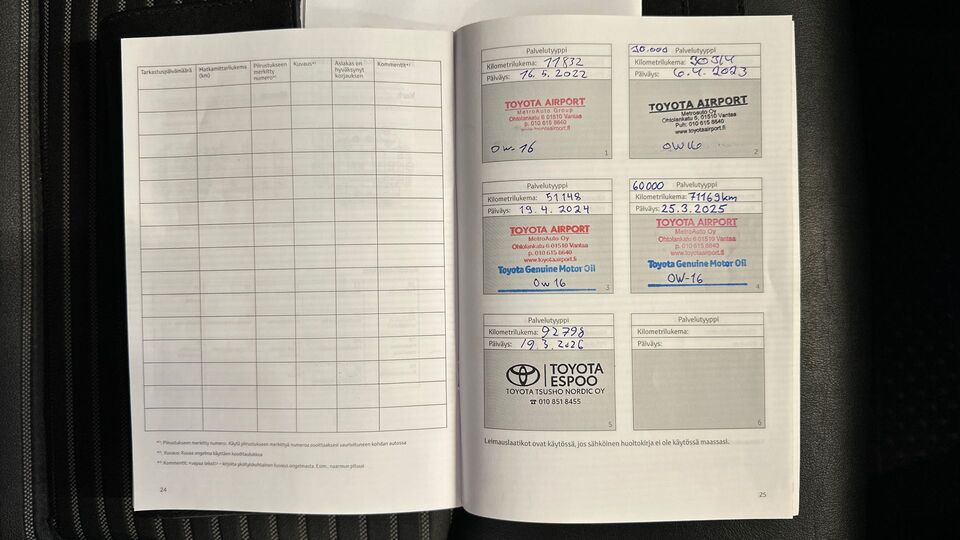 Tarkastuspäivämäärä
Matkamittarilukema (km)
Piirustukseen merkitty numero*¹
Kuvaus*²
Asiakas on hyväksynyt korjauksen
Kommentit*³
*¹: Piirustukseen merkitty numero: Käytä piirustukseen merkittyä numeroa osoittaaksesi vaurioituneen kohdan autossa
*²: Kuvaus: Kuvaa ongelma käyttäen kooditaulukkoa
*³: Kommentit: <vapaa teksti> – kirjoita yksityiskohtainen kuvaus ongelmasta. Esim., naarmun pituus
24
Palvelutyyppi
Kilometrilukema: 11832
Päiväys: 16.5.2022
TOYOTA AIRPORT
MetroAuto Group
Ohtolankatu 6 01510 Vantaa
p. 010 615 8640
www.toyotaairport.fi
OW-16
1
30.000 Palvelutyyppi
Kilometrilukema:
Päiväys: 6.4.2023
TOYOTA AIRPORT
MetroAuto Oy
Ohtolankatu 6, 01510 Vantaa
Puh: 010 615 8640
www.toyotaairport.fi
OW16
2
Palvelutyyppi
Kilometrilukema: 51148
Päiväys: 19.4.2024
TOYOTA AIRPORT
MetroAuto Oy
Ohtolankatu 6 01510 Vantaa
p. 010 615 8640
www.toyotaairport.fi
Toyota Genuine Motor Oil
OW16
3
60000 Palvelutyyppi
Kilometrilukema: 71169km
Päiväys: 25.3.2025
TOYOTA AIRPORT
MetroAuto Oy
Ohtolankatu 6 01510 Vantaa
p. 010 615 8640
www.toyotaairport.fi
Toyota Genuine Motor Oil
OW-16
4
Palvelutyyppi
Kilometrilukema: 92798
Päiväys: 19.3.2026
TOYOTA
ESPOO
TOYOTA TSUSHO NORDIC OY
☎ 010 851 8455
5
Palvelutyyppi
Kilometrilukema:
Päiväys:
6
Leimauslaatikot ovat käytössä, jos sähköinen huoltokirja ei ole käytössä maassasi.
25